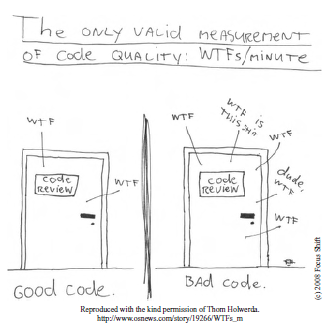 The ONLY VALID MEASUREMENT
OF Code QUALITY: WTFs/MINUTE
WTF
code
REVIEW
WTF
GOOD CODE.
WTF
WTF IS
THIS SHIT
WTF
code
REVIEW
dude,
WTF
WTF
BAD CODE.
(c) 2008 Focus Shift
Reproduced with the kind permission of Thom Holwerda.
http://www.osnews.com/story/19266/WTFs_m